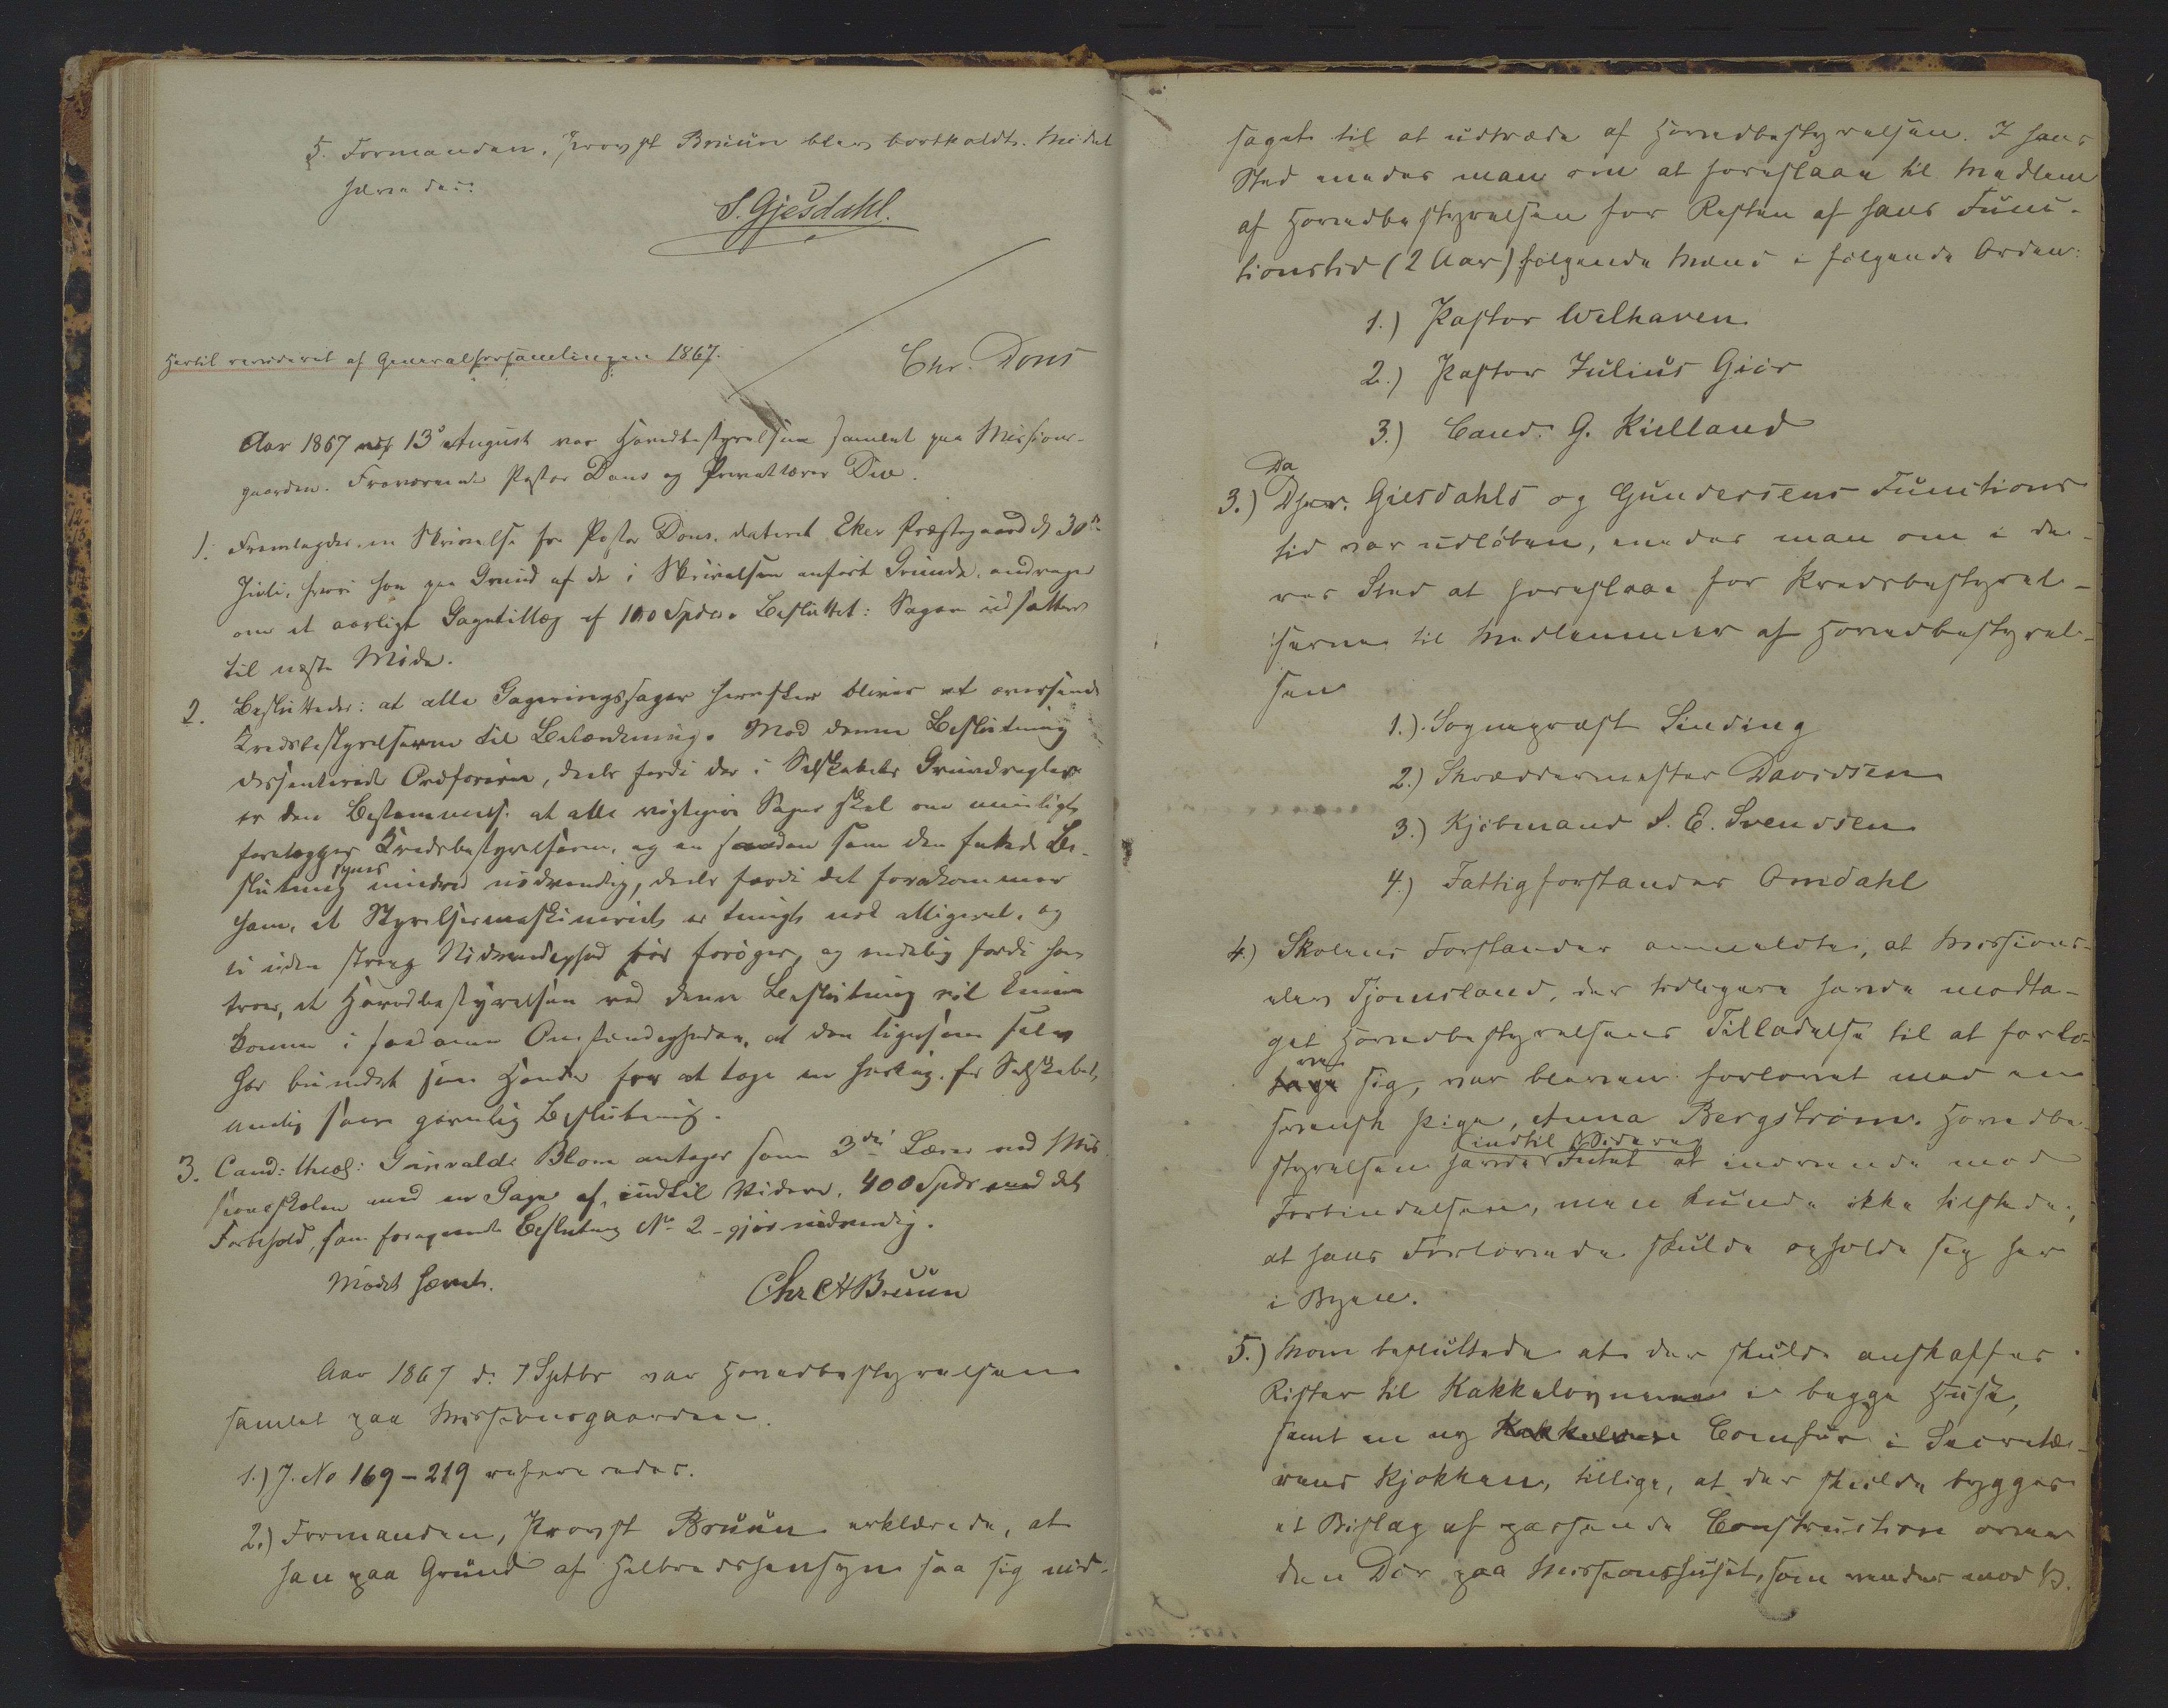 5. Formanden, Provst Bruun blev bortkaldt. Mødet
hævedes:
S. Gjesdahl.
Hertil revideret af Generalforsamlingen 1867.
Chr. Dons
Aar 1867 13de August var Hovedbestyrelsen samlet paa Missions-
gaarden. Fraværende Pastor Dons og Privatlærer Due.
1. Fremlagdes en Skrivelse fra Pastor Dons, dateret Eker Præstegaard d 30te
Juli, hvori han paa Grund af de i Skrivelsen anførte Grunde, andrager
om et aarligt Gagetillæg af 100 Spdlr. Besluttet: Sagen udsættes
til næste Møde.
2. Besluttedes: at alle Gageringssager herefter bliver at oversende
Kredsbestyrelserne til Betænkning. Mod denne Beslutning
dissenterede Ordføreren, deels fordi der i Selskabets Grundregler
er den Bestemmelse, at alle vigtigere Sager skal om muligt
forelægges Kredsbestyrelserne, og en saadan som den fattede Be-
slutning synes mindre nødvendig, deels fordi det forekommer
ham, at Styrelsesmaskineriet er tungt nok alligevel, og
ei uden streng Nødvendighed bør forøges, og endelig fordi han
troer, at Hovedbestyrelsen ved denne Beslutning vil kunne
komme i saadanne Omstændigheder, at den ligesom selv
har bundet sine Hænder for at tage en hurtig, for Selskabet
gavnlig Beslutning.
3. Cand: theol: Gunvalde Blom antages som 3die Lærer ved Mis-
sionsskolen med en Gage af, indtil Videre, 400 Spdr med det
Forbehold, som foregaaende Beslutning No 2 gjør nødvendig.
Mødet hævet.
Chr A Bruun
Aar 1867 d: 7 Septbr var Hovedbestyrelsen
samlet paa Missionsgaarden.
1.) J. No 169-219 refereredes.
2.) Formanden, Provst Bruun erklærede, at
han paa Grund af Helbredshensyn saa sig nød-
saget til at udtræde af Hovedbestyrelsen. I hans
Sted enedes man om at foreslaae til Medlem
af Hovedbestyrelsen for Resten af hans Func-
tionstid (2 Aar) følgende Mænd i følgende Orden:
1.) Pastor Welhaven
2.) Pastor Julius Giør
3.) Cand. G. Kielland
3.) Da Dhrr. Giesdahls og Gundersens Functions
tid var udløben, enedes man om i de-
res Sted at foreslaae for Kredsbestyrel-
serne til Medlemmer af Hovedbestyrel-
sen
1.) Sognepræst Sinding
2.) Skræddermester Davidsen
3.) Kjøbmand S. E. Svendsen
4.) Fattigforstander Omdahl
4.) Skolens Forstander anmeldte, at Missions-
elev Tjomsland, der tidligere havde modta-
get Hovedbestyrelsens Tilladelse til at forlo-
ve sig, var bleven forlovet med en
svensk Pige, Anna Bergstrøm. Hovedbe-
styrelsen havde indtil Videre Intet at indvende mod
Forbindelsen, men kunde ikke tilstede,
at hans Forlovede skulde opholde sig her
i Byen.
5.) Man besluttede at der skulde anskaffes
Rister til Kakkelovnene i begge Huse,
samt en ny Comfur i Secretæ-
rens Kjøkken, tillige, at der skulde bygges
et Bislag af passende Construction over
den Dør paa Missionshuset, som vender mod V.